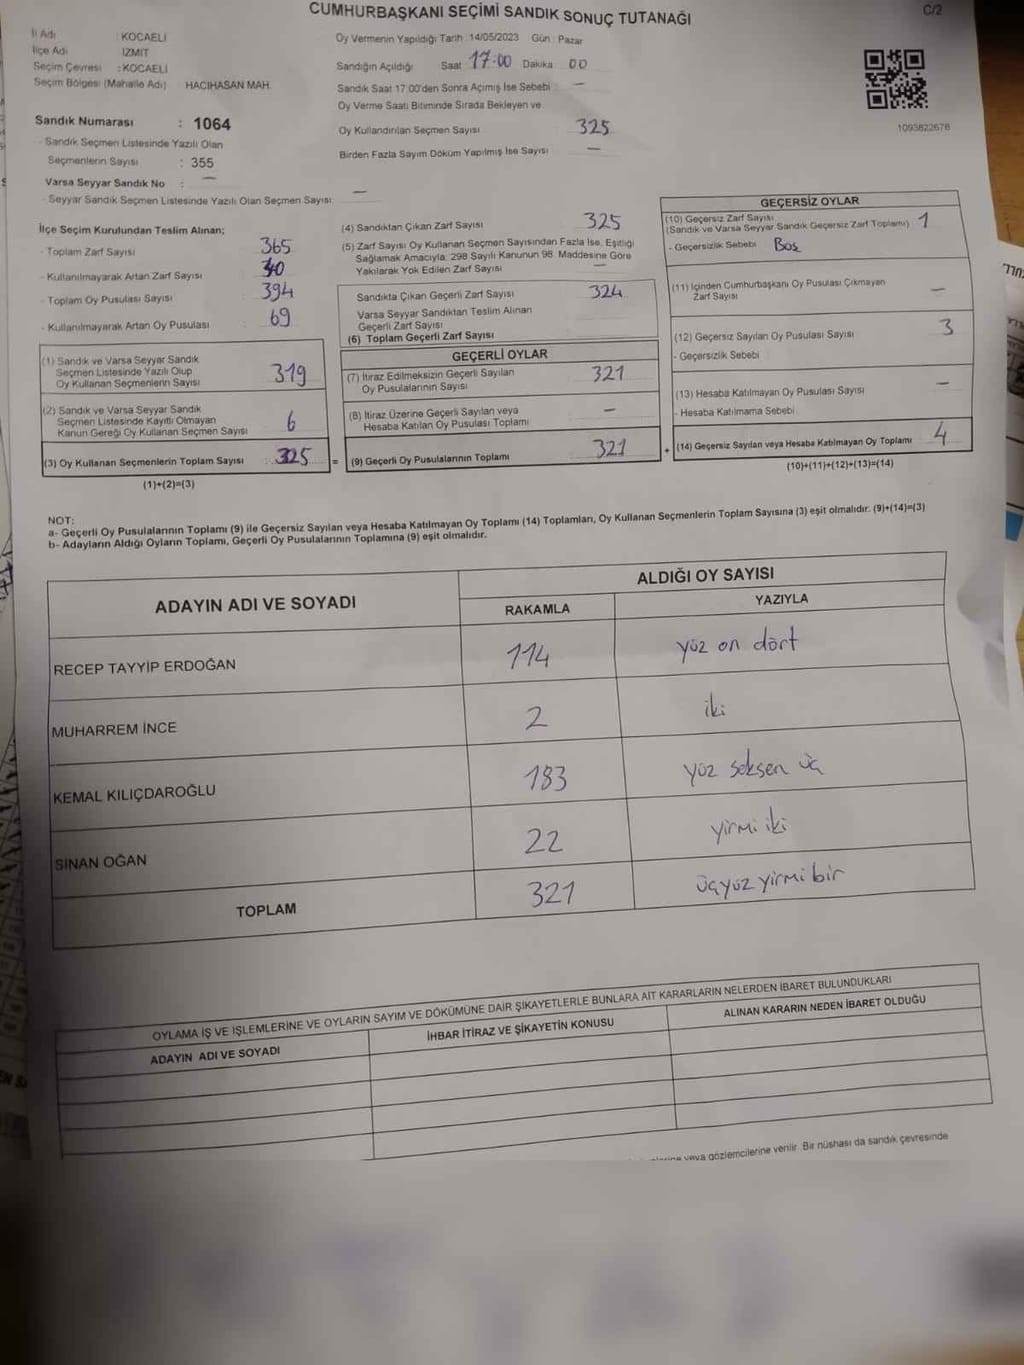 CUMHURBAŞKANI SEÇİMİ SANDIK SONUÇ TUTANAĞI
C/2
İl Adı : KOCAELİ
İlçe Adı İZMİT
Seçim Çevresi : KOCAELİ
Seçim Bölgesi (Mahalle Adı) HACIHASAN MAH.
Sandık Numarası : 1064
- Sandık Seçmen Listesinde Yazılı Olan
Seçmenlerin Sayısı : 355
Varsa Seyyar Sandık No : —
- Seyyar Sandık Seçmen Listesinde Yazılı Olan Seçmen Sayısı: —
Oy Vermenin Yapıldığı Tarih :14/05/2023 Gün : Pazar
Sandığın Açıldığı Saat 17:00 Dakika 00
Sandık Saat 17:00'den Sonra Açımış İse Sebebi : —
Oy Verme Saati Bitiminde Sırada Bekleyen ve
Oy Kullandırılan Seçmen Sayısı 325
Birden Fazla Sayım Döküm Yapılmış İse Sayısı —
1093822678
İlçe Seçim Kurulundan Teslim Alınan;
- Toplam Zarf Sayısı 365
- Kullanılmayarak Artan Zarf Sayısı 40
- Toplam Oy Pusulası Sayısı 394
- Kullanılmayarak Artan Oy Pusulası 69
(1) Sandık ve Varsa Seyyar Sandık
Seçmen Listesinde Yazılı Olup
Oy Kullanan Seçmenlerin Sayısı 319
(2) Sandık ve Varsa Seyyar Sandık
Seçmen Listesinde Kayıtlı Olmayan
Kanun Gereği Oy Kullanan Seçmen Sayısı 6
(3) Oy Kullanan Seçmenlerin Toplam Sayısı : 325
(1)+(2)=(3)
(4) Sandıktan Çıkan Zarf Sayısı 325
(5) Zarf Sayısı Oy Kullanan Seçmen Sayısından Fazla İse, Eşitliği
Sağlamak Amacıyla; 298 Sayılı Kanunun 98. Maddesine Göre
Yakılarak Yok Edilen Zarf Sayısı —
Sandıkta Çıkan Geçerli Zarf Sayısı 324
Varsa Seyyar Sandıktan Teslim Alınan
Geçerli Zarf Sayısı
(6) Toplam Geçerli Zarf Sayısı
GEÇERLİ OYLAR
(7) İtiraz Edilmeksizin Geçerli Sayılan
Oy Pusulalarının Sayısı 321
(8) İtiraz Üzerine Geçerli Sayılan veya
Hesaba Katılan Oy Pusulası Toplamı —
= (9) Geçerli Oy Pusulalarının Toplamı 321
GEÇERSİZ OYLAR
(10) Geçersiz Zarf Sayısı
(Sandık ve Varsa Seyyar Sandık Geçersiz Zarf Toplamı) 1
- Geçersizlik Sebebi Boş
(11) İçinden Cumhurbaşkanı Oy Pusulası Çıkmayan
Zarf Sayısı —
(12) Geçersiz Sayılan Oy Pusulası Sayısı 3
- Geçersizlik Sebebi
(13) Hesaba Katılmayan Oy Pusulası Sayısı —
- Hesaba Katılmama Sebebi
+ (14) Geçersiz Sayılan veya Hesaba Katılmayan Oy Toplamı 4
(10)+(11)+(12)+(13)=(14)
NOT:
a- Geçerli Oy Pusulalarının Toplamı (9) ile Geçersiz Sayılan veya Hesaba Katılmayan Oy Toplamı (14) Toplamları, Oy Kullanan Seçmenlerin Toplam Sayısına (3) eşit olmalıdır. (9)+(14)=(3)
b- Adayların Aldığı Oyların Toplamı, Geçerli Oy Pusulalarının Toplamına (9) eşit olmalıdır.
ADAYIN ADI VE SOYADI
ALDIĞI OY SAYISI
RAKAMLA YAZIYLA
RECEP TAYYİP ERDOĞAN 114 yüz on dört
MUHARREM İNCE 2 iki
KEMAL KILIÇDAROĞLU 183 yüz seksen üç
SİNAN OĞAN 22 yirmi iki
TOPLAM 321 üçyüz yirmi bir
OYLAMA İŞ VE İŞLEMLERİNE VE OYLARIN SAYIM VE DÖKÜMÜNE DAİR ŞİKAYETLERLE BUNLARA AİT KARARLARIN NELERDEN İBARET BULUNDUKLARI
ADAYIN ADI VE SOYADI İHBAR İTİRAZ VE ŞİKAYETİN KONUSU ALINAN KARARIN NEDEN İBARET OLDUĞU
veya gözlemcilerine verilir. Bir nüshası da sandık çevresinde